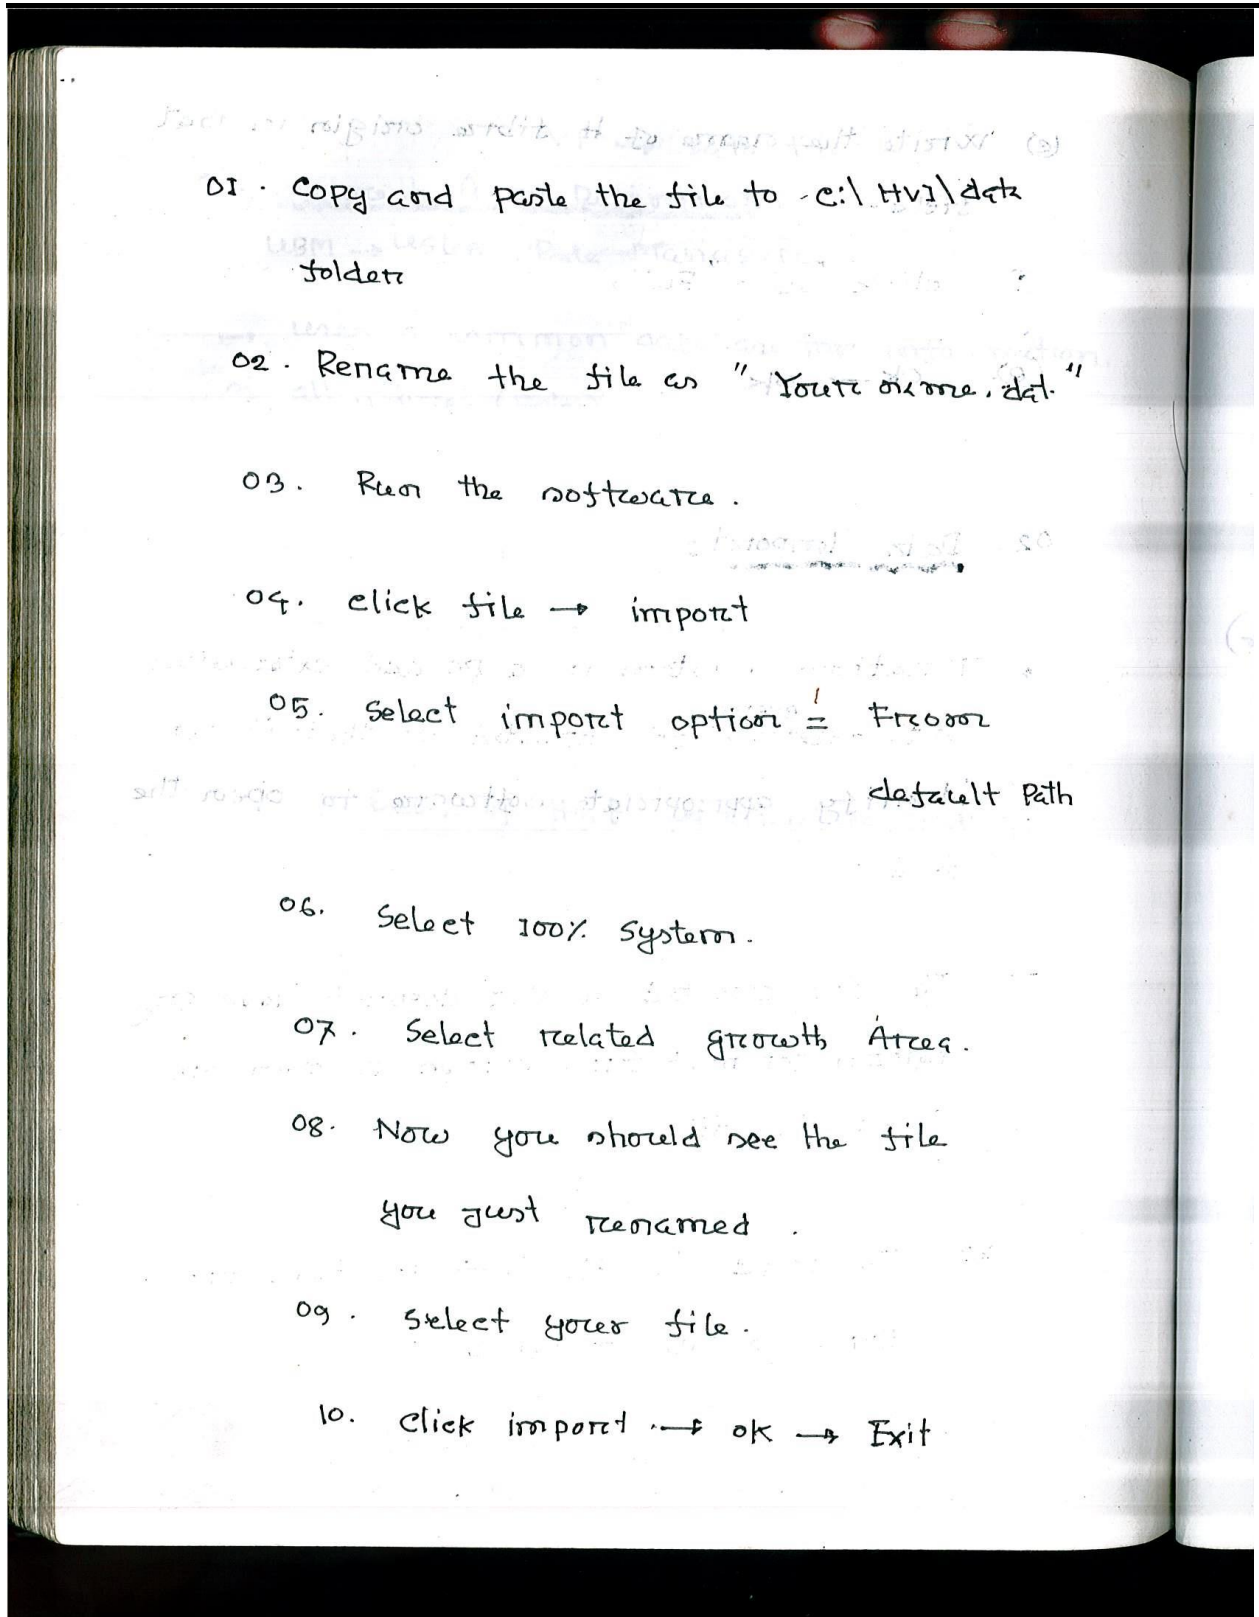 01. Copy and paste the file to c:\HVI\data
folder
02. Rename the file as "Your name.dat."
03. Run the software.
04. click file → import
05. Select import option = From
default Path
06. Select 100% System.
07. Select related growth Area.
08. Now you should see the file
you just renamed.
09. Select your file.
10. Click import → ok → Exit